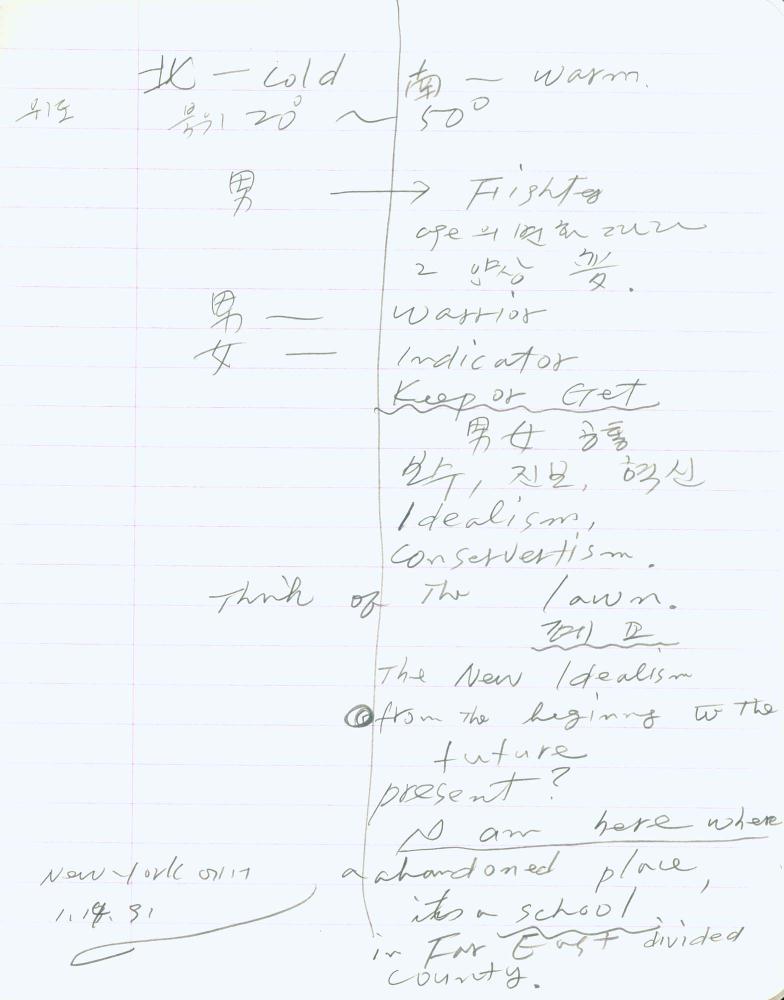 北 — cold 南 — warm.
위도 북위 20° ~ 50°
男 → Fighter
age의 변화
그 양상
男 — Warrior
女 — Indicator
Keep or Get
男女 공통
보수, 진보, 혁신
Idealism,
conservertism.
Think of The lawn.
The New Idealism
from The beginng to The
future
present?
am here where
a abandoned place,
its a school
in Far East divided
county.
New York에서